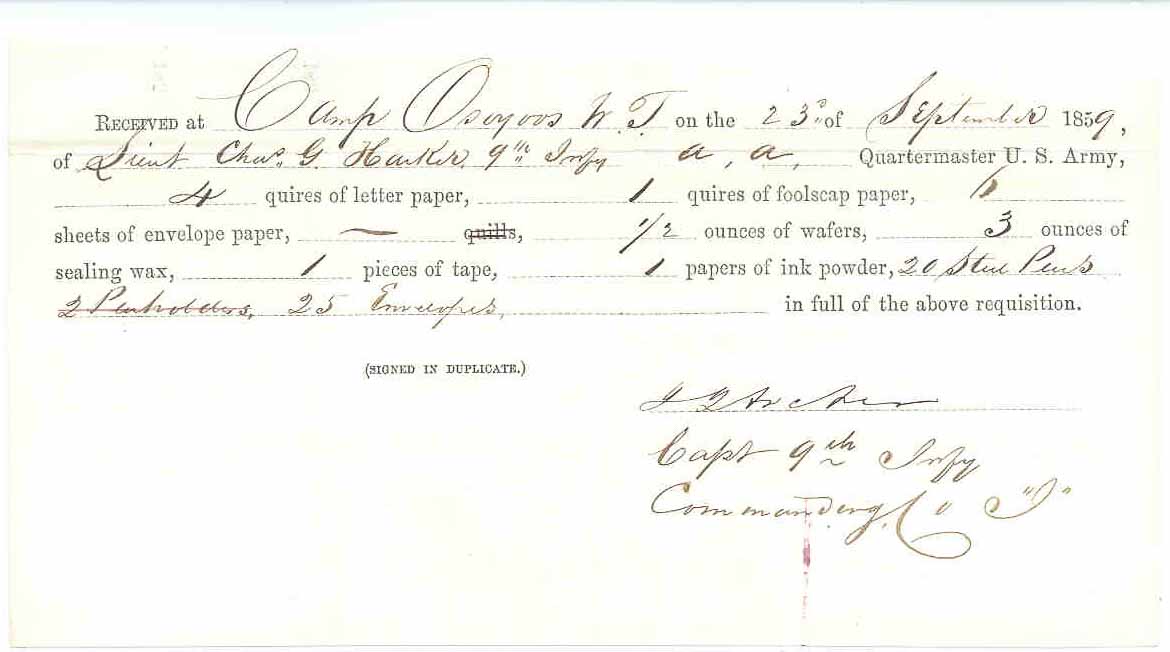 RECEIVED at Camp Osoyoos W. T. on the 23d of September 1859,
of Lieut Chas. G. Harker, 9th Infy a, a, Quartermaster U. S. Army,
4 quires of letter paper, 1 quires of foolscap paper,
sheets of envelope paper, — quills, 1/2 ounces of wafers, 3 ounces of
sealing wax, 1 pieces of tape, 1 papers of ink powder, 20 Steel Pens
2 Penholders, 25 Envelopes, in full of the above requisition.
(SIGNED IN DUPLICATE.)
J J Archer
Capt 9th Infy
Commanding Co "I"